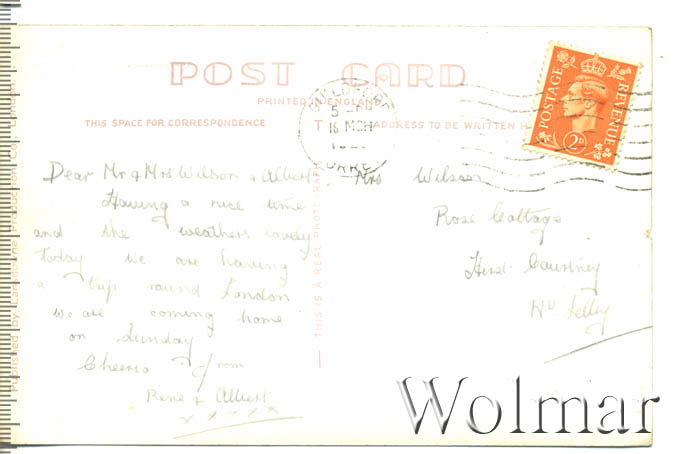 POST CARD
PRINTED IN ENGLAND
THIS SPACE FOR CORRESPONDENCE
ADDRESS TO BE WRITTEN H
GUILDFORD
5 -PM
16 MCH
SURREY
POSTAGE
REVENUE
2D
Dear Mr & Mrs Wilson & Albert
Having a nice time
and the weathers lovely
today we are having
a trip round London
we are coming home
on Sunday
Cheerio from
Rene & Albert
x x x x x
Mrs Wilson
Rose Cottage
Hirst Courtney
Nr Selby
THIS IS A REAL PHOTO
Published by
Wolmar